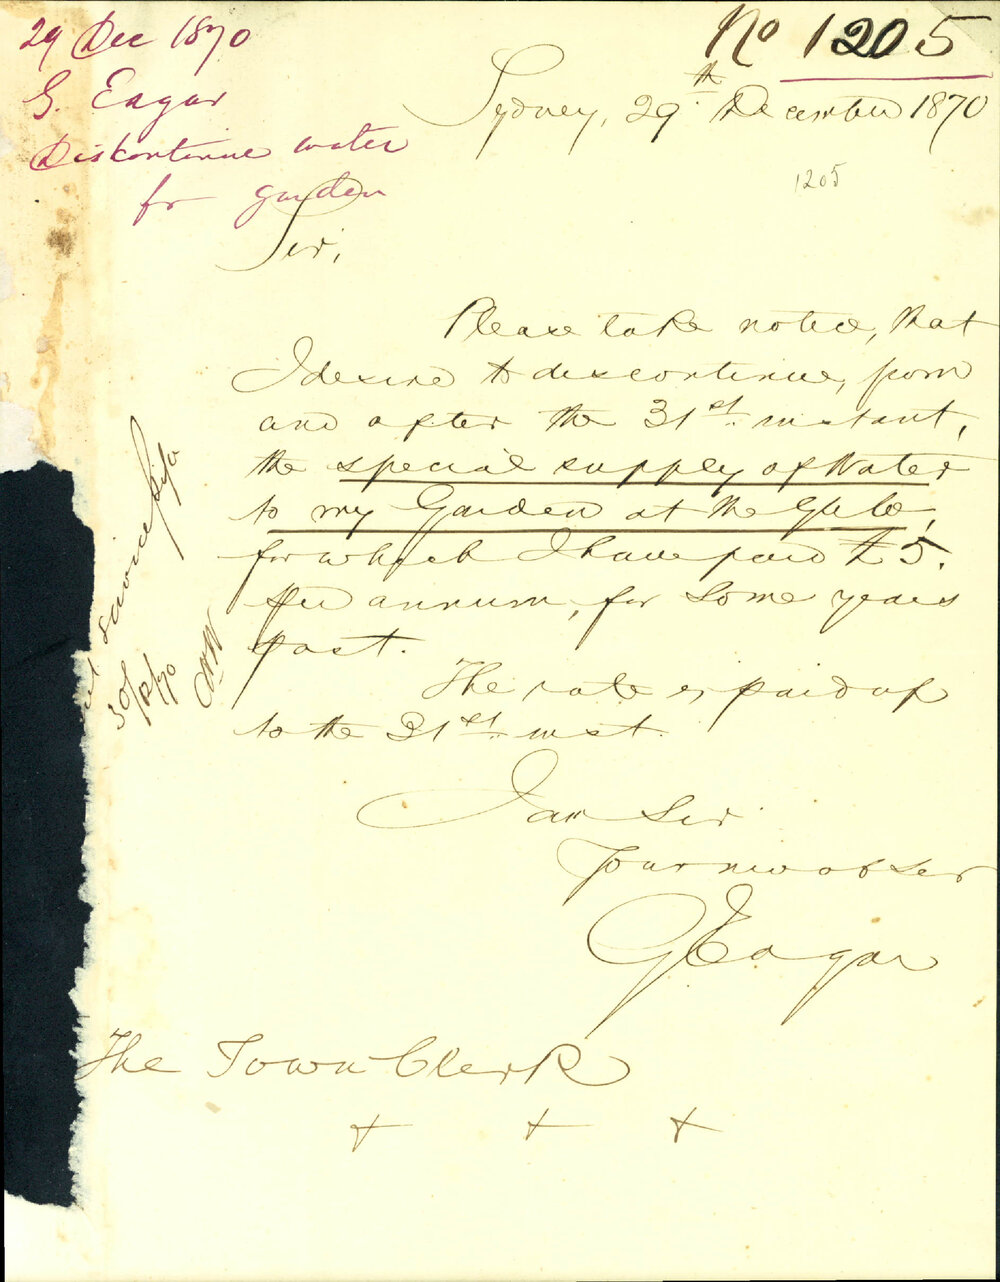 29 Dec 1870
G. Eagar
Discontinue water
for garden
No 1205
Sydney, 29th December 1870
1205
Sir,
Please take notice, that
I desire to discontinue, from
and after the 31st instant,
the special supply of Water
to my Garden at the Glebe,
for which I have paid £5.
per annum, for some years
past.
The rate is paid up
to the 31st inst.
I am Sir
Your mo ob Ser
G Eagar
The Town Clerk
30/12/70